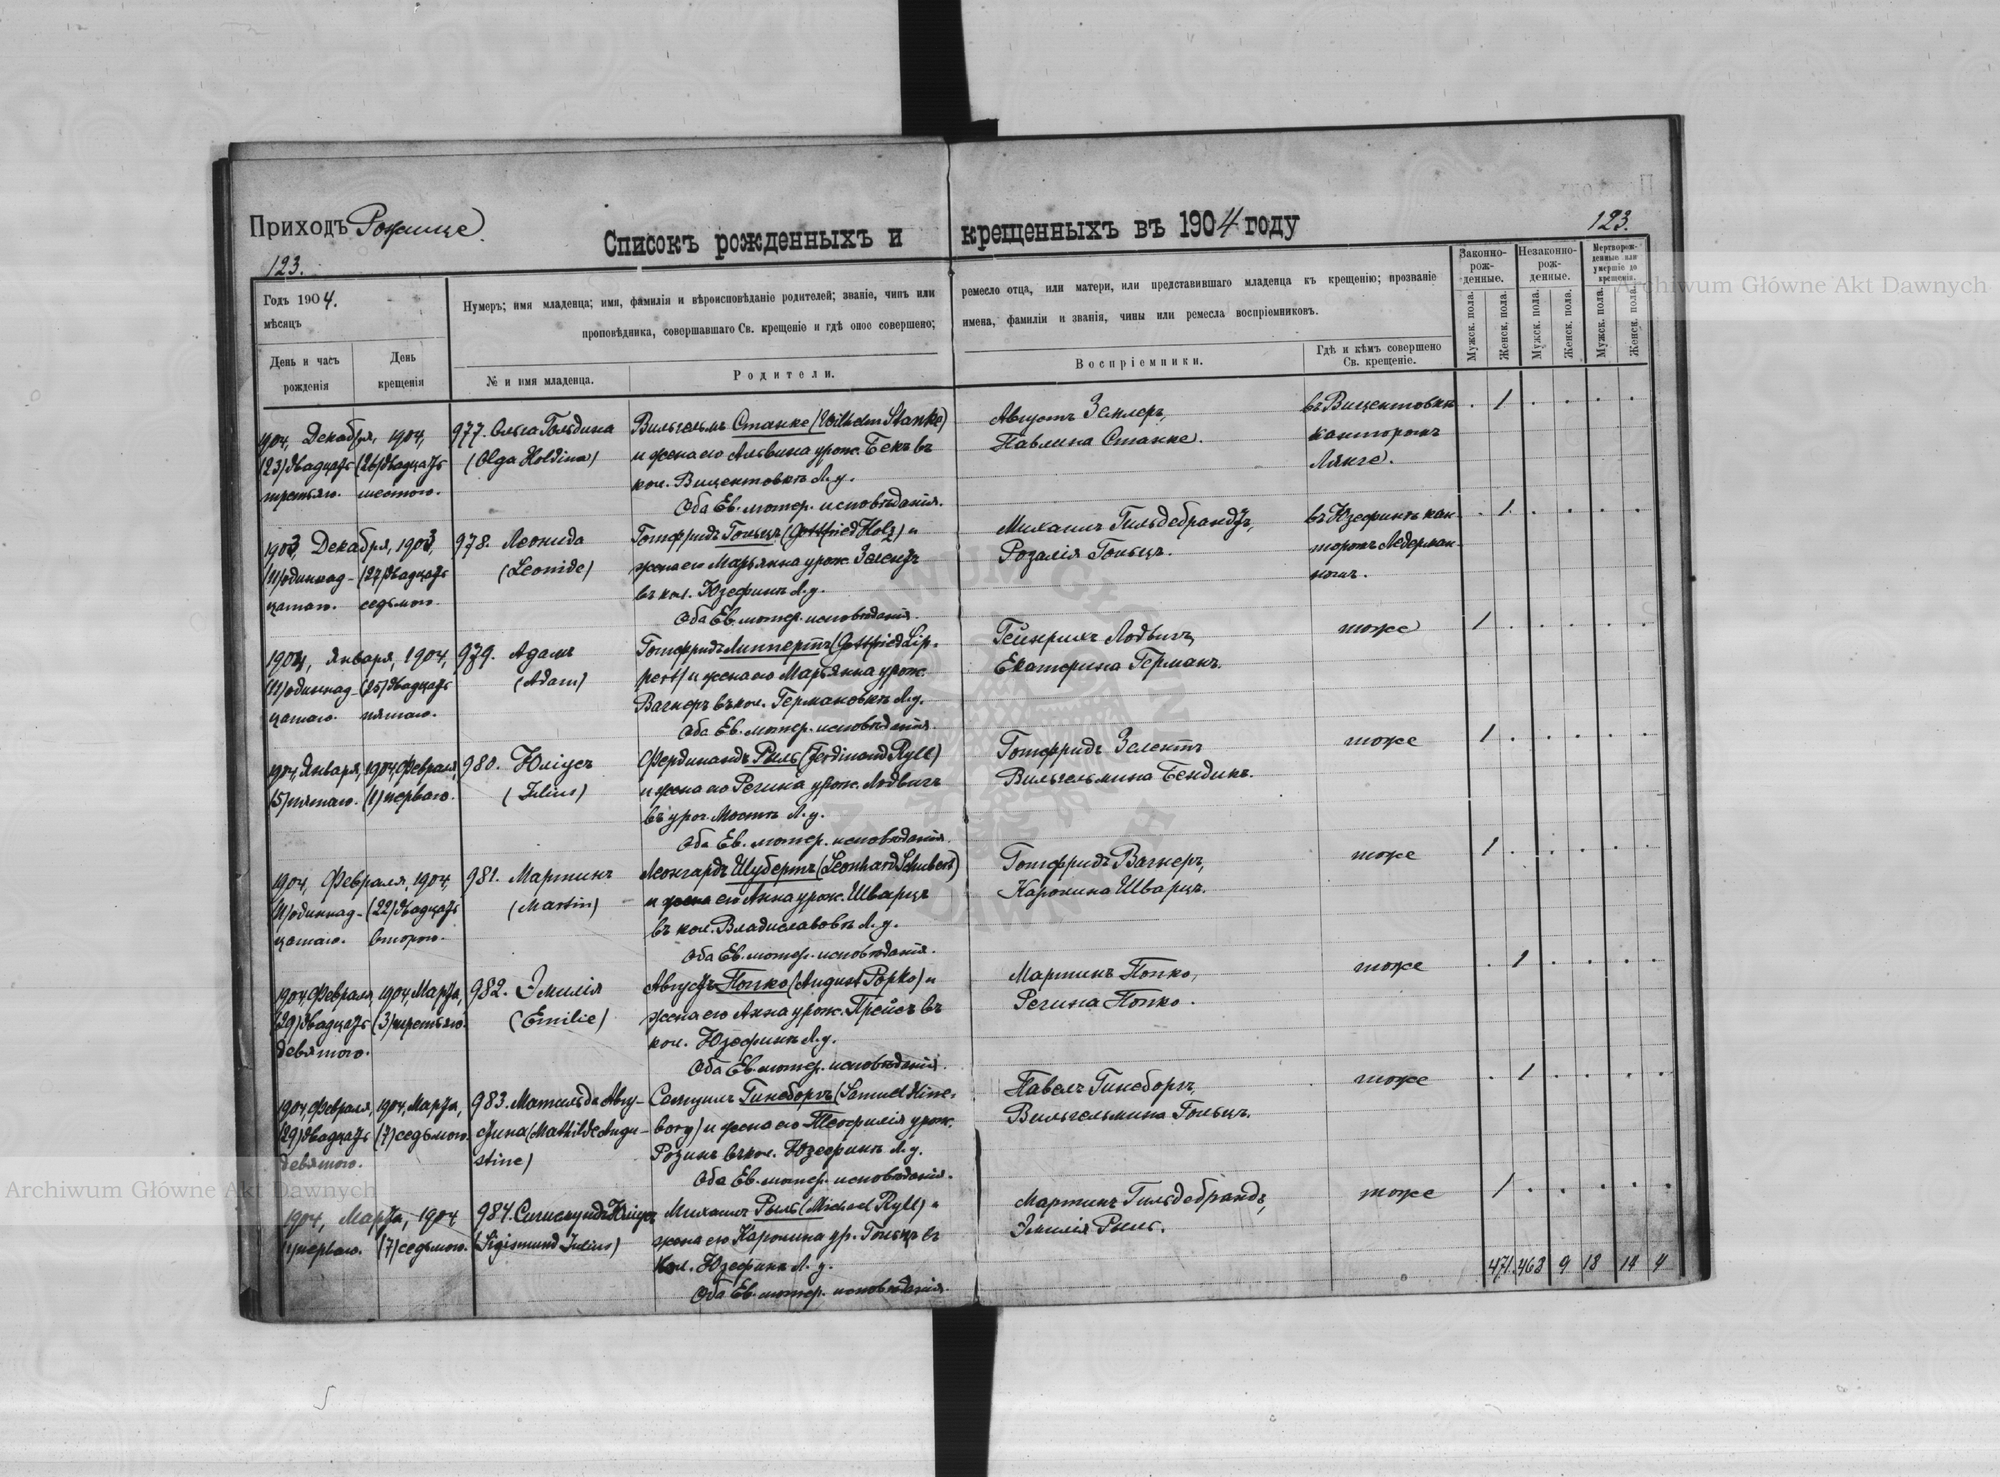 Приходъ Рожище.
Списокъ рожденныхъ и крещенныхъ въ 1904 году
123.
123.
Годъ 1904.
мѣсяцъ
День и часъ рожденія
День крещенія
Нумеръ; имя младенца; имя, фамилія и вѣроисповѣданіе родителей; званіе, чинъ или
проповѣдника, совершавшаго Св. крещеніе и гдѣ оное совершено;
№ и имя младенца.
Родители.
ремесло отца, или матери, или представившаго младенца къ крещенію; прозваніе
имена, фамиліи и званія, чины или ремесла воспріемниковъ.
Воспріемники.
Гдѣ и кѣмъ совершено Св. крещеніе.
Законно-рож-денные.
Незаконно-рож-денные.
Мертворож-денные или умершіе до крещенія.
Мужск. пола.
Женск. пола.
Мужск. пола.
Женск. пола.
Мужск. пола.
Женск. пола.
1904, Декабря, 1904, 977. Ольга Гольдина Вильгельмъ Станке (Wilhelm Stanke) Августъ Землеръ, въ Вицентовкѣ 1
(23) двадцать (26) двадцать (Olga Holdina) и жена его Альвина урож. Бекъ въ Павлина Станке. канторомъ
третьяго. шестого. кол. Вицентовкѣ Л.у. Лянге.
Оба Ев. лютер. исповѣданія.
1903, Декабря, 1903, 978. Леонида Готфридъ Гольцъ (Gottfried Holz) и Михаилъ Гильдебрандъ, въ Юзефинѣ кан- 1
(11) одиннад- (27) двадцать (Leonide) жена его Марьянна урож. Зелентъ Розалія Гольцъ. торомъ Ледерман-
цатаго. седьмого въ кол. Юзефинѣ Л.у. номъ.
Оба Ев. лютер. исповѣданія.
1904, Января, 1904, 979. Адамъ Готфридъ Липпертъ (Gottfried Lip- Гейнрихъ Лодвигъ, тоже 1
(11) одиннад- (25) двадцать (Adam) pert) и жена его Марьянна урож. Екатерина Германъ.
цатаго. пятаго. Вагнеръ въ кол. Германовкѣ Л.у.
Оба Ев. лютер. исповѣданія.
1904, Января, 1904, Февраля, 980. Юліусъ Фердинандъ Рыль (Ferdinand Ryll) Готфридъ Зелентъ тоже 1
(5) пятаго. (1) перваго. (Julius) и жена его Регина урож. Лодвигъ Вильгельмина Бендикъ.
въ уроч. Мостѣ Л.у.
Оба Ев. лютер. исповѣданія.
1904, Февраля, 1904, 981. Мартинъ Леонгардъ Шубертъ (Leonhard Schubert) Готфридъ Вагнеръ, тоже 1
(11) одиннад- (22) двадцать (Martin) и жена его Анна урож. Шварцъ Каролина Шварцъ.
цатаго. второго. въ кол. Владиславовкѣ Л.у.
Оба Ев. лютер. исповѣданія.
1904, Февраля, 1904, Марта, 982. Эмилія Августъ Попко (August Popko) и Мартинъ Попко, тоже 1
(29) двадцать (3) третьяго. (Emilie) жена его Анна урож. Прейсъ въ Регина Попко.
девятого. кол. Юзефинѣ Л.у.
Оба Ев. лютер. исповѣданія.
1904, Февраля, 1904, Марта, 983. Матильда Авгу- Самуилъ Гинсборгъ (Samuel Hins- Павелъ Гинсборгъ, тоже 1
(29) двадцать (7) седьмого. стина (Mathilde Augu- borg) и жена его Теофилія урож. Вильгельмина Гольцъ.
девятого. stine) Розинъ въ кол. Юзефинѣ Л.у.
Оба Ев. лютер. исповѣданія.
1904, Марта, 1904 984. Сигисмундъ Юліусъ Михаилъ Рыль (Michael Ryll) и Мартинъ Гильдебрандъ, тоже 1
(1) перваго. (7) седьмого. (Sigismund Julius) жена его Каролина ур. Гольцъ въ Эмилія Рыль.
кол. Юзефинѣ Л.у.
Оба Ев. лютер. исповѣданія.
471. 463 9 18 14 4
Archiwum Główne Akt Dawnych
Archiwum Główne Akt Dawnych